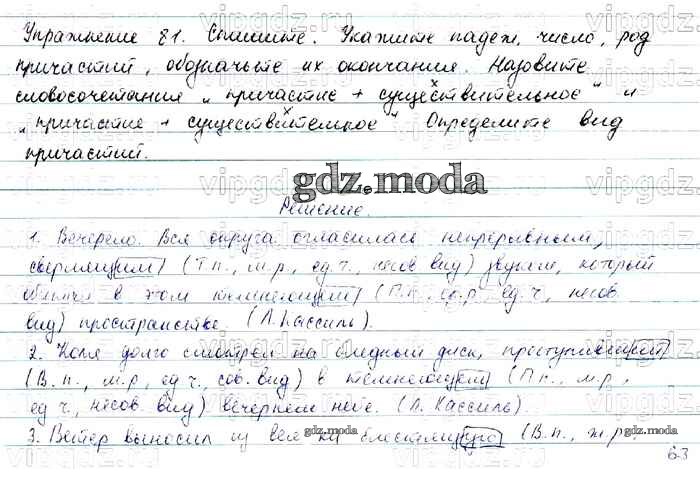 Упражнение 81. Спишите. Укажите падеж, число, род
причастий, обозначьте их окончания. Назовите
словосочетания "причастие + существительное" и
"причастие + существительное" Определите вид
причастий.
gdz.moda
Решение.
1. Вечерело. Вся округа огласилась непрерывным,
сверлящим (Т.п., м.р., ед.ч., несов вид) звуком, который
в этом темнеющем (П.п., ср.р, ед.ч, несов.
вид) пространстве. (Л. Кассиль).
2. Коля долго смотрел на бледный диск, проступивший
(В.п., м.р, ед.ч., сов. вид) в темнеющем (П.п., м.р.,
ед.ч., несов. вид) вечернем небе. (Л. Кассиль).
3. Ветер выносил из блестящую (В.п., ж.р,
gdz.moda gdz.moda
63